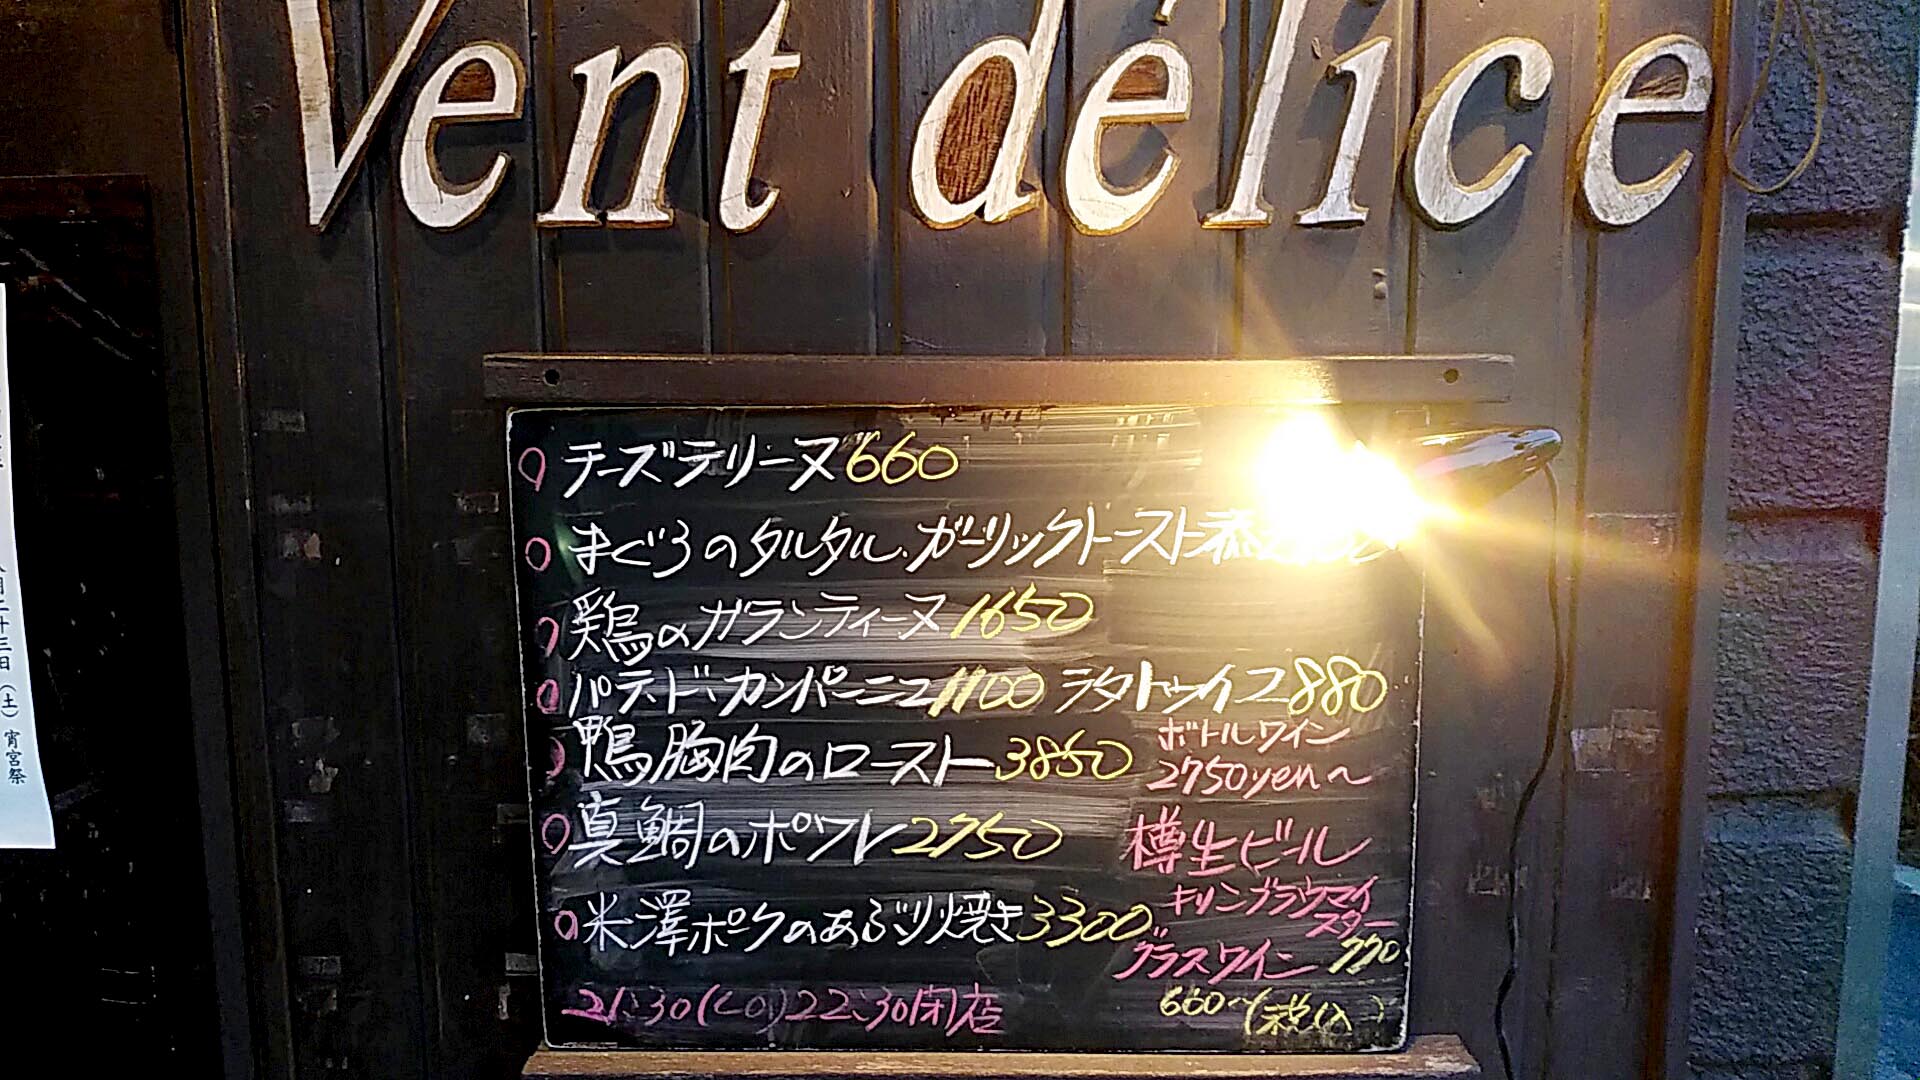 Vent délice
チーズテリーヌ660
まぐろのタルタル.ガーリックトースト添
鶏のガランティーヌ1650
パテ・ド・カンパーニュ1100 ラタトゥイユ880
鴨胸肉のロースト3850
真鯛のポワレ2750
米澤ポークのあぶり焼き3300
21:30(LO)22:30閉店
ボトルワイン
2750yen～
樽生ビール
キリンブラウマイ
スター
770
グラスワイン
660～(税込)
月二十三日(土)宵宮祭